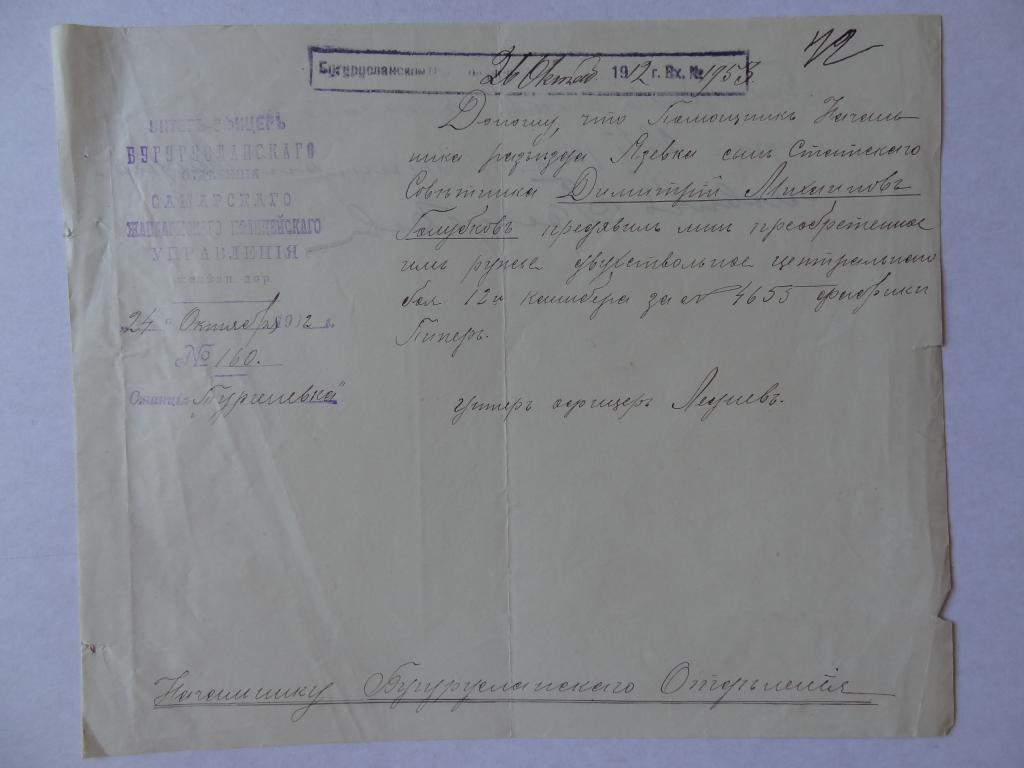 72
Бугурусланском 26 Октбр 1912 г. Вх. № 1953
УНТЕРЪ-ОФИЦЕРЪ
БУГУРУСЛАНСКАГО
ОТДѢЛЕНІЯ
САМАРСКАГО
ЖАНДАРМСКАГО ПОЛИЦЕЙСКАГО
УПРАВЛЕНІЯ
желѣзн. дор.
„24" Октября 1912 г.
№ 160.
Станція „Тургеневка"
Доношу, что Помощникъ Началь
ника разъезда Язевка сынъ Статскаго
Совѣтника Димитрій Михаиловъ
Голубковъ предявилъ мнѣ преобретенное
имъ ружье двухствольное центральнаго
боя 12и калибера за № 4655 фабрики
Пиперъ.
Унтеръ офицеръ
Началнику Бугурусланскаго Отдѣленія